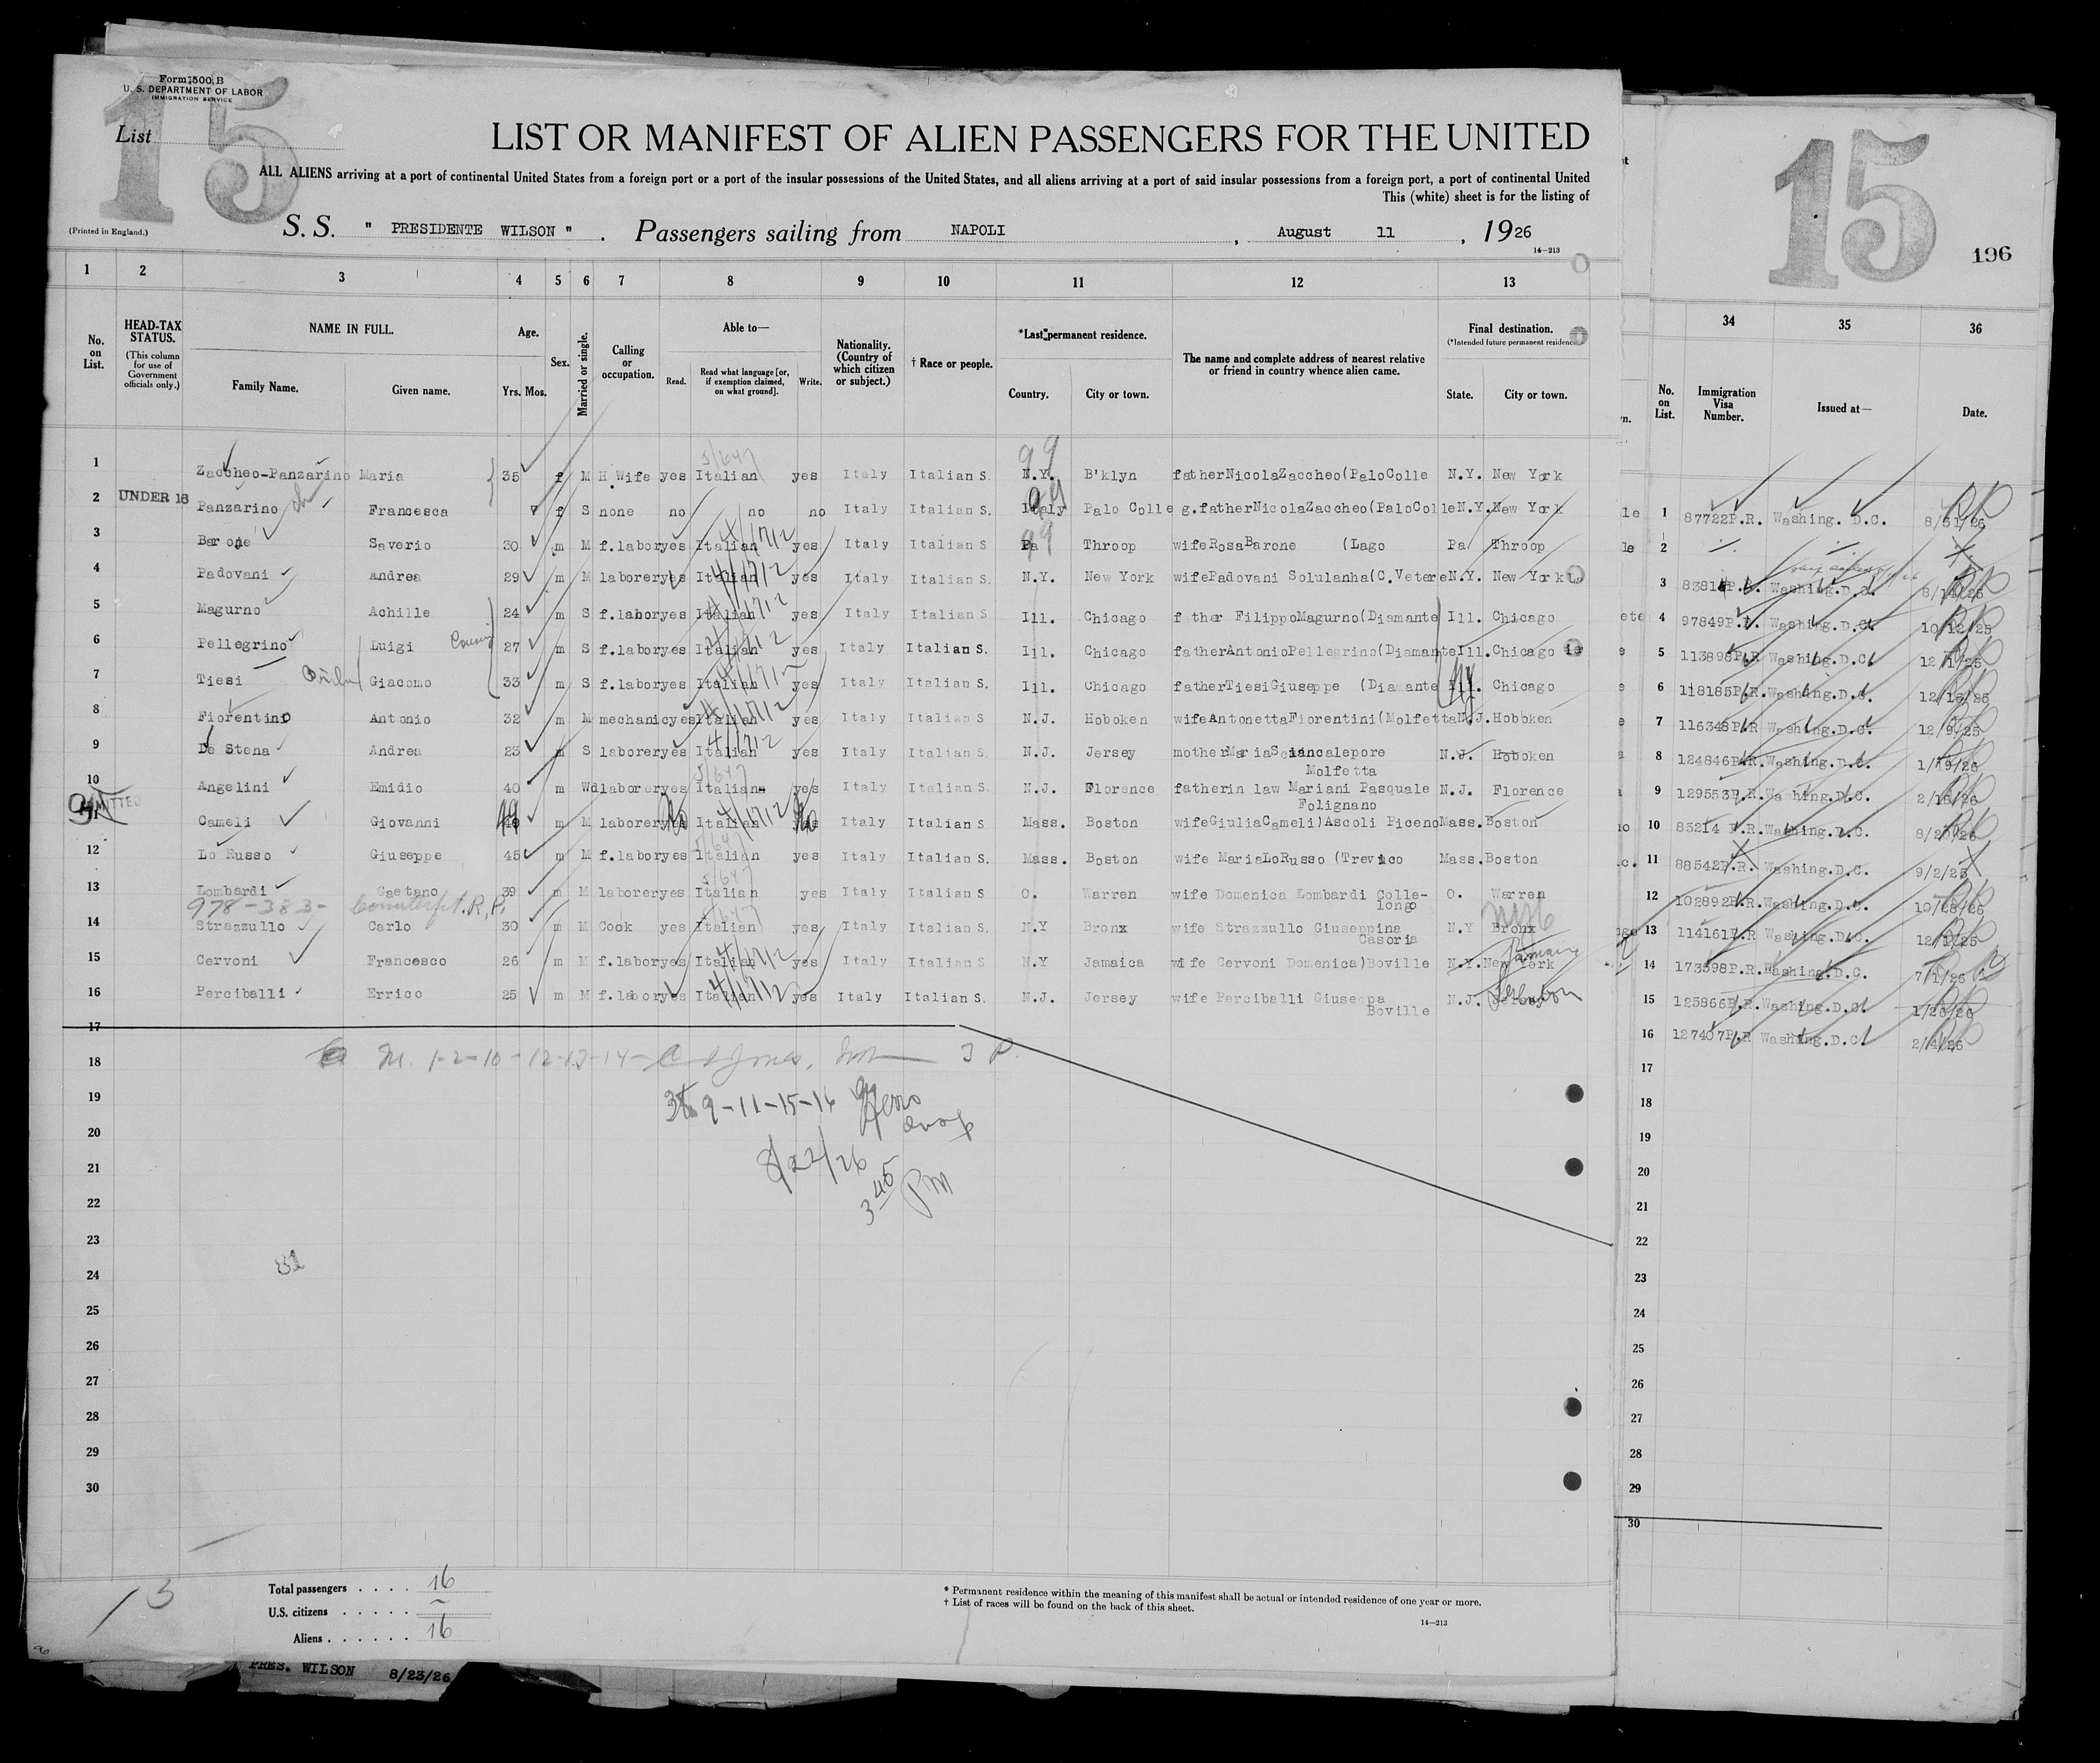 15
Form 500 B
U. S. DEPARTMENT OF LABOR
IMMIGRATION SERVICE
List
LIST OR MANIFEST OF ALIEN PASSENGERS FOR THE UNITED
ALL ALIENS arriving at a port of continental United States from a foreign port or a port of the insular possessions of the United States, and all aliens arriving at a port of said insular possessions from a foreign port, a port of continental United
This (white) sheet is for the listing of
(Printed in England.)
S. S. " PRESIDENTE WILSON " . Passengers sailing from NAPOLI , August 11 , 1926
14—213
1 2 3 4 5 6 7 8 9 10 11 12 13
No. on List.
HEAD-TAX STATUS.
(This column for use of Government officials only.)
NAME IN FULL.
Family Name. Given name.
Age.
Yrs. Mos.
Sex.
Married or single.
Calling or occupation.
Able to—
Read. Read what language [or, if exemption claimed, on what ground]. Write.
Nationality. (Country of which citizen or subject.)
† Race or people.
*Last permanent residence.
Country. City or town.
The name and complete address of nearest relative or friend in country whence alien came.
Final destination.
(*Intended future permanent residence
State. City or town.
1 Zaccheo-Panzarino Maria 35 f M H.Wife yes Italian yes Italy Italian S N.Y. B'klyn fatherNicolaZaccheo(PaloColle N.Y. New York
2 UNDER 16 Panzarino Francesca f S none no no no Italy Italian S. Italy Palo Colle g.fatherNicolaZaccheo(PaloColle N.Y. New York
3 Barone Saverio 30 m M f.labor yes Italian yes Italy Italian S. Pa Throop wifeRosaBarone (Lago Pa Throop
4 Padovani Andrea 29 m M laborer yes Italian yes Italy Italian S. N.Y. New York wifePadovani Solulanha(C.Vetere N.Y. New York
5 Magurno Achille 24 m S f.labor yes Italian yes Italy Italian S Ill. Chicago father FilippoMagurno(Diamante Ill. Chicago
6 Pellegrino Luigi 27 m S f.labor yes Italian yes Italy Italian S. Ill. Chicago fatherAntonioPellegrino(Diamante Ill. Chicago
7 Tiesi Giacomo 33 m S f.labor yes Italian yes Italy Italian S. Ill. Chicago fatherTiesiGiuseppe (Diamante Ill. Chicago
8 Fiorentino Antonio 32 m M mechanic yes Italian yes Italy Italian S N.J. Hoboken wifeAntonettaFiorentini(Molfetta N.J. Hobboken
9 De Stena Andrea 23 m S laborer yes Italian yes Italy Italian S. N.J. Jersey motherMariaSciancalepore N.J. Hoboken
Molfetta
10 Angelini Emidio 40 m Wd laborer yes Italian yes Italy Italian S. N.J. Florence fatherin law Mariani Pasquale N.J. Florence
Folignano
ADMITTED
11 Cameli Giovanni m M laborer Italian Italy Italian S Mass. Boston wifeGiuliaCameli)Ascoli Piceno Mass. Boston
12 Lo Russo Giuseppe 45 m M f.labor yes Italian yes Italy Italian S. Mass. Boston wife MariaLoRusso (Trevico Mass. Boston
13 Lombardi Gaetano 39 m M laborer yes Italian yes Italy Italian S O. Warren wife Domenica Lombardi Colle- O. Warren
longo
978-383-
14 Strazzullo Carlo 30 m M Cook yes Italian yes Italy Italian S N.Y Bronx wife Strazzullo Giuseppina N.Y Bronx
Casoria
15 Cervoni Francesco 26 m M f.labor yes Italian yes Italy Italian S N.Y Jamaica wife Cervoni Domenica)Boville N.Y. New York
Jamaica
16 Perciballi Errico 25 m M f.labor yes Italian yes Italy Italian S. N.J. Jersey wife Perciballi Giuseppa N.J.
Boville
17
18 1-2-10-12-13-14-
19 9-11-15-16
20
8/22/26
21
3 45 PM
22
23
24
25
26
27
28
29
30
Total passengers . . . . 16
U.S. citizens . . . . . ~
Aliens . . . . . . 16
13
* Permanent residence within the meaning of this manifest shall be actual or intended residence of one year or more.
† List of races will be found on the back of this sheet.
14—213
PRES. WILSON 8/23/26
15
196
34 35 36
No. on List.
Immigration Visa Number.
Issued at—
Date.
1 87722P.R. Washing. D.C. 8/31/26
2
3 8381 P.R. Washing.D.C.
4 97849P.R. Washing.D.C. 10/12/25
5 113898P.R Washing.D.C. 12/1/25
6 118185P.R. Washing.D.C. 12/16/25
7 116348P.R Washing.D.C. 12/9/25
8 124846P.R. Washing.D.C. 1/19/26
9 129553P.R. Washing.D.C. 2/16/26
10 85214 P.R. Washing.D.C.
11 88542P.R. Washing.D.C. 9/2/25
12 102892P.R. Washing.D.C. 10/28/26
13 114161P.R Washing.D.C. 12/1/25
14 173398P.R. Washing.D.C. 7/1/26
15 125866P.R. Washing.D.C. 1/26/26
16 127407P.R Washing.D.C. 2/4/26
17
18
19
20
21
22
23
24
25
26
27
28
29
30